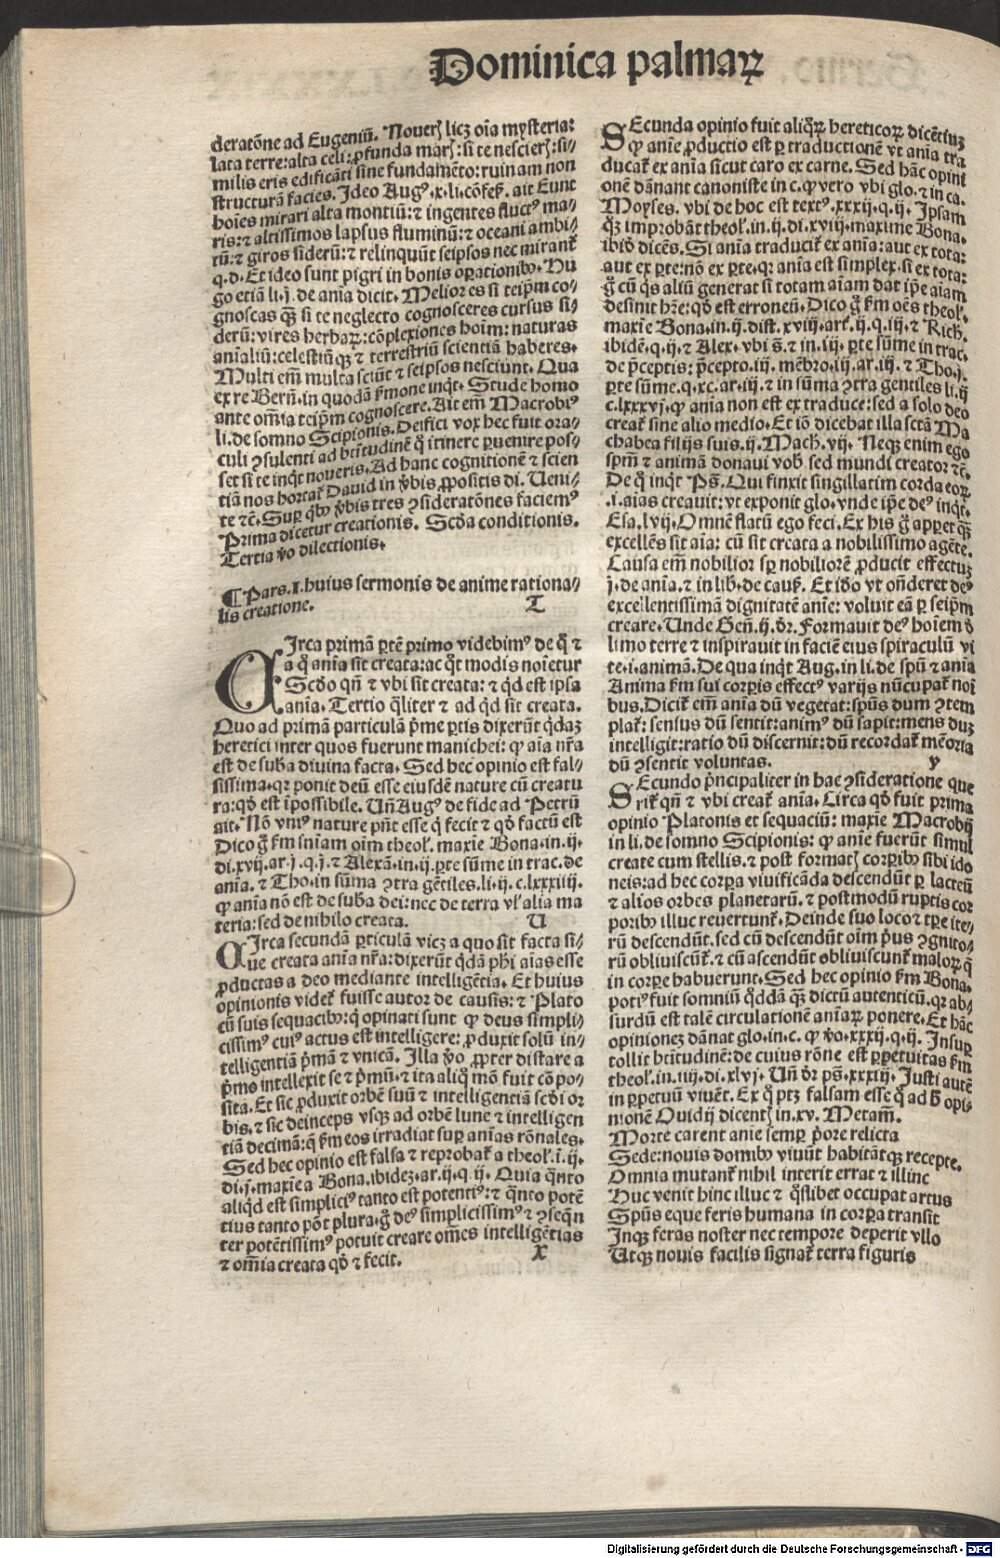 Dominica palmaꝝ
deratōne ad Eugeniū. Nouerꝭ licꝫ oīa mysteria:
lata terre: alta celi: ꝓfunda marꝭ: si te nescierꝭ: si⸗
milis eris edificāti sine fundamēto: ruinam non
structurā facies. Ideo Augꝰ.x.li.cōfeſ. ait Eunt
hoīes mirari alta montiū: ⁊ ingentes fluctꝰ ma⸗
ris: ⁊ altissimos lapsus fluminū: ⁊ oceani ambi⸗
tū: ⁊ giros siderū: ⁊ relinquūt seipsos nec mirant̄
q.d. Et ideo sunt pigri in bonis oꝑationibꝰ. Hu
go etiā li.j. de anīa dicit. Melior es si teip̄m co⸗
gnoscas qꝫ si te neglecto cognosceres cursus si⸗
derū: vires herbaꝝ: cōplexiones hoīm: naturas
anīaliū: celestiūqꝫ ⁊ terrestriū scientiā haberes.
Multi em̄ multa sciūt ⁊ seipsos nesciunt. Qua
ex re Bern̄. in quodā ẜmone inqt. Stude homo
ante om̄ia teip̄m cognoscere. Ait em̄ Macrobiꝰ
li. de somno Scipionis. Deifici vox hec fuit ora⸗
culi ꝯsulenti ad btītudinē q̇ itinere ꝑuenire pos⸗
set si te inqt noueris. Ad hanc cognitionē ⁊ scien
tiā nos hortat̄ Dauid in ꝟbis ꝓpositis di. Ueni⸗
te ⁊c̄. Suꝑ qͥbꝰ ꝟbis tres ꝯsideratōnes faciemꝰ
Prima dicetur creationis. Scd̄a conditionis.
Tertia ꝟo dilectionis.
¶ Pars.I. huius sermonis de anime rationa⸗
lis creatione. T
CIrca primā ꝑtē primo videbimꝰ de q̄ ⁊
a q̊ anīa sit creata: ac q̊t modis noīetur
Scd̄o qn̄ ⁊ vbi sit creata: ⁊ qd est ipsa
anīa. Tertio qͣliter ⁊ ad qd sit creata.
Quo ad primā particulā pͥme ꝑtis dixerūt qͥdaꝫ
heretici inter quos fuerunt manichei: ꝙ aīa nr̄a
est de suba diuina facta. Sed hec opinio est fal⸗
sissima. qꝛ ponit deū esse eiusdē nature cū creatu
ra: qd̄ est īpossibile. Un̄ Augꝰ de fide ad Petrū
ait. Nō vniꝰ nature pn̄t esse q̇ fecit ⁊ qd̄ factū est
Dico g̊ ẜm sniam oīm theoł. maxie Bona. in.ij.
di.xvij. ar.j.q.j. ⁊ Alexā. in.ij. ꝑte sūme in trac. de
anīa. ⁊ Tho. in sūma ꝯtra gētiles. li.ij.c.lxxxiiij.
ꝙ anīa nō est de suba dei: nec de terra vł alia ma
teria: sed de nihilo creata. U
CIrca secundā ꝑticulā vicꝫ a quo sit facta si⸗
ue creata anīa nr̄a: dixerūt qͥdā phi aīas esse
ꝓductas a deo mediante intelligētia. Et huius
opinionis videt̄ fuisse autor de causis: ⁊ Plato
cū suis sequacibꝰ: q̇ opinati sunt ꝙ deus simpli⸗
cissimꝰ cuiꝰ actus est intelligere: ꝓduxit solū in⸗
telligentiā pͥmā ⁊ vnicā. Illa ꝟo ꝓpter distare a
pͥmo intellexit se ⁊ pͥmū. ⁊ ita aliq̊ mō fuit cōpo⸗
sita. Et sic ꝓduxit orbē suū ⁊ intelligentiā scd̄i or
bis. ⁊ sic deinceps vsqꝫ ad orbē lune ⁊ intelligen
tiā decimā: q̄ ẜm eos irradiat suꝑ anīas rōnales.
Sed hec opinio est falsa ⁊ reprobat̄ a theoł.i.ij.
di.j. maxie a Bona. ibidez. ar.ij.q.ij. Quia qͣnto
aliqd est simpliciꝰ tanto est potentiꝰ: ⁊ qͣnto potē
tius tanto pōt plura. g̊ deꝰ simplicissimꝰ ⁊ ꝯseqn̄
ter potētissimꝰ potuit creare omēs intelligētias
⁊ om̄ia creata qd̄ ⁊ fecit. X
SEcunda opinio fuit aliq̊ꝝ hereticoꝝ dicētiuꝫ
ꝙ anīe ꝓductio est ꝑ traductionē vt anīa tra
ducat̄ ex anīa sicut caro ex carne. Sed hāc opini
onē dānant canoniste in c. ꝙ vero vbi glo. ⁊ in ca.
Moyses. vbi de hoc est textꝰ.xxxij.q.ij. Ipsam
qꝫ improbāt theoł. in.ij.di.xviij. maxime Bona.
ibid̄ dicēs. Si anīa traducit̄ ex anīa: aut ex tota:
aut ex ꝑte: nō ex ꝑte. qꝛ anīa est simplex. si ex tota:
g̊ cū qͥs aliū generat si totam aīam dat ip̄e aīam
desinit hr̄e: qd̄ est erroneū. Dico g̊ ẜm oēs theoł.
maxīe Bona. in.ij. dist.xviij. art̄.ij.q.iij. ⁊ Rich.
ibidē.q.ij. ⁊ Alex. vbi s̄. ⁊ in.iij. ꝑte sūme in trac.
de p̄ceptis: p̄cepto.iij. mēbro.iij.ar.iij. ⁊ Tho.j.
ꝑte sūme.q.xc.ar.iij. ⁊ in sūma ꝯtra gentiles li.ij
c.lxxxvj. ꝙ anīa non est ex traduce: sed a solo deo
creat̄ sine alio medio. Et iō dicebat illa sctā Ma
chabea filijs suis.ij. Mach.vij. Neqꝫ enim ego
spm̄ ⁊ animā donaui vob̄. sed mundi creator ⁊c̄.
De q̊ inqt Ps̄. Qui finxit singillatim corda eoꝝ
.i. aīas creauit: vt exponit glo. vnde ip̄e deꝰ inqt.
Esa.lvij. Omnē flatū ego feci. Ex his g̊ apꝑet qꝫ
excellēs sit aīa: cū sit creata a nobilissimo agēte.
Causa em̄ nobilior sꝑ nobiliorē ꝓducit effectuꝫ
j. de anīa. ⁊ in lib. de cauſ. Et id̄o vt on̄deret deꝰ
excellentissimā dignitatē anīe: voluit eā ꝑ seip̄m
creare. Unde Gen̄.ij. dr̄. Formauit deꝰ hoīem d̄
limo terre ⁊ inspirauit in faciē eius spiraculū vi
te.i. animā. De qua inqt Aug. in li. de spū ⁊ anīa
Anima ẜm sui corꝑis effectꝰ varijs nūcupat̄ noī
bus. Dicit̄ em̄ anīa dū vegetat: spūs dum ꝯtem
plat̄: sensus dū sentit: animꝰ dū sapit: mens duꝫ
intelligit: ratio dū discernit: dū recordat̄ mēoria
dū ꝯsentit voluntas. Y
SEcundo pͥncipaliter in hac ꝯsideratione que
rit̄ qn̄ ⁊ vbi creat̄ anīa. Circa qd̄ fuit prima
opinio Platonis et sequaciū: maxīe Macrobij
in li. de somno Scipionis: ꝙ anīe fuerūt simul
create cum stellis. ⁊ post formatꝭ corꝑibꝰ sibi ido
neis: ad hec corꝑa viuificāda descendūt ꝑ lacteū
⁊ alios orbes planetarū. ⁊ postmodū ruptis cor
poribꝰ illuc reuertunt̄. Deinde suo loco ⁊ tꝑe ite⸗
rū descendūt. sed cū descendūt oīm pͥus ꝯgnito⸗
rū obliuiscūt̄. ⁊ cū ascendūt obliuiscunt̄ maloꝝ q̄
in corꝑe habuerunt. Sed hec opinio ẜm Bona.
potiꝰ fuit somniū qͦddā qꝫ dictū autenticū. qꝛ ab⸗
surdū est talē circulationē anīaꝝ ponere. Et hāc
opinioneꝫ dānat glo. in.c. ꝙ ꝟo.xxxij.q.ij. Insuꝑ
tollit btītudinē: de cuius rōne est ꝑpetuitas ẜm
theoł. in.iiij.di.xlvj. Un̄ dr̄ ps̄.xxxiij. Justi autē
in ꝑpetuū viuēt. Ex q̊ ptꝫ falsam esse q̊ ad h̄ opi⸗
nionē Ouidij dicentꝭ in.xv. Metam̄.
Morte carent anīe semꝑ pͥore relicta
Sede: nouis domibꝰ viuūt habitātqꝫ recepte.
Omnia mutant̄ nihil interit errat ⁊ illinc
Huc venit hinc illuc ⁊ qͦslibet occupat artus
Spūs eque feris humana in corꝑa transit
Inqꝫ feras noster nec tempore deperit vllo
Utqꝫ nouis facilis signat̄ terra figuris
Digitalisierung gefördert durch die Deutsche Forschungsgemeinschaft - DFG